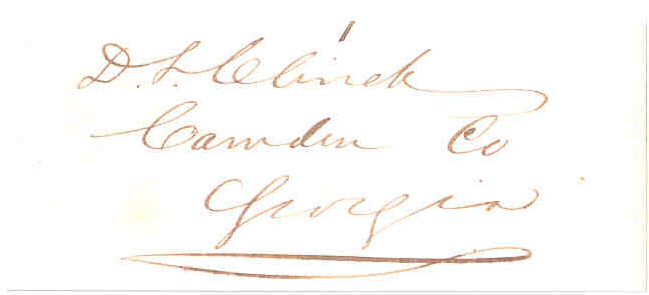 D. L. Clinch
Camden Co
Georgia